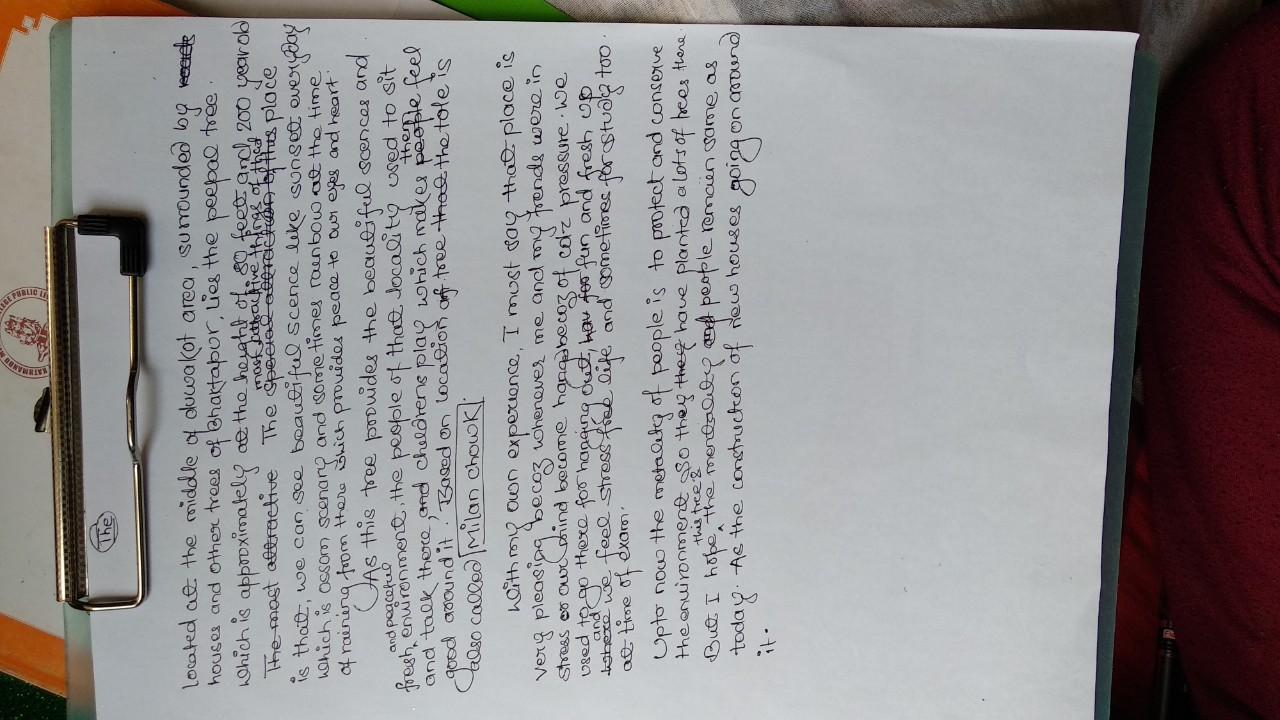 The
Located at the middle of duwakot area, surrounded by
houses and other trees of Bhaktapur, lies the peepal tree.
which is approximately at the height of 80 feet and 200 year old
most attractive things of this
The most attractive The special attraction of this place
is that, we can see beautiful scence like sunset everyday
which is assom scenary and sometimes rainbow at the time
of raining from there which provides peace to our eyes and heart.
As this tree provides the beautiful scences and
and peaceful
fresh, environment, the people of that locality used to sit
them
and talk there, and childrens play which makes people feel
good around it. Based on location of tree that the tole is
also called Milan chowk.
With my own experience, I must say that place is
very pleasing becoz whenever me and my frends were in
stress or our mind become hanged becoz of col'z pressure. We
used to go there for hanging out, for fun and fresh up
and
where we feel stress free life and sometimes for study too.
at time of exam.
Upto now the metality of people is to protect and conserve
the environment so they they have planted a lots of trees there.
this tree &
But I hope, the mentality of people remain same as
today. As the construction of new houses going on around
it.
KATHMANDU